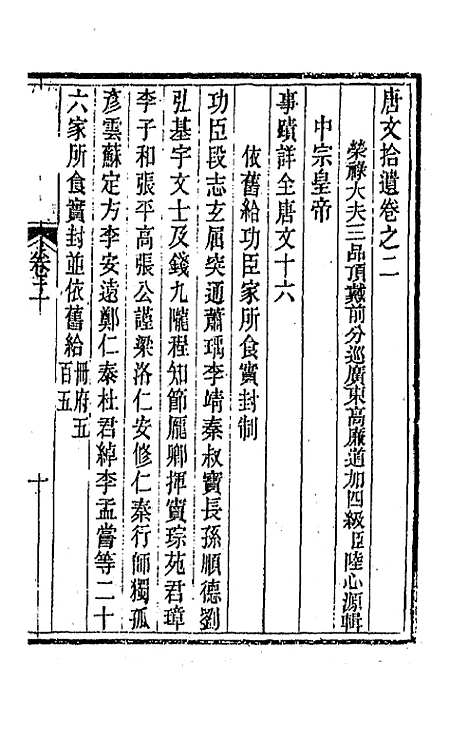 唐文拾遺卷之二
榮祿大夫三品頂戴前分巡廣東高廉道加四級臣陸心源輯
中宗皇帝
事蹟詳全唐文十六
依舊給功臣家所食實封制
功臣段志玄屈突通蕭瑀李靖秦叔寶長孫順德劉
弘基宇文士及錢九隴程知節龐卿揮竇琮苑君璋
李子和張平高張公謹梁洛仁安修仁秦行師獨孤
彥雲蘇定方李安遠鄭仁泰杜君綽李孟嘗等二十
六家所食實封並依舊給冊府五百五
卷二
十